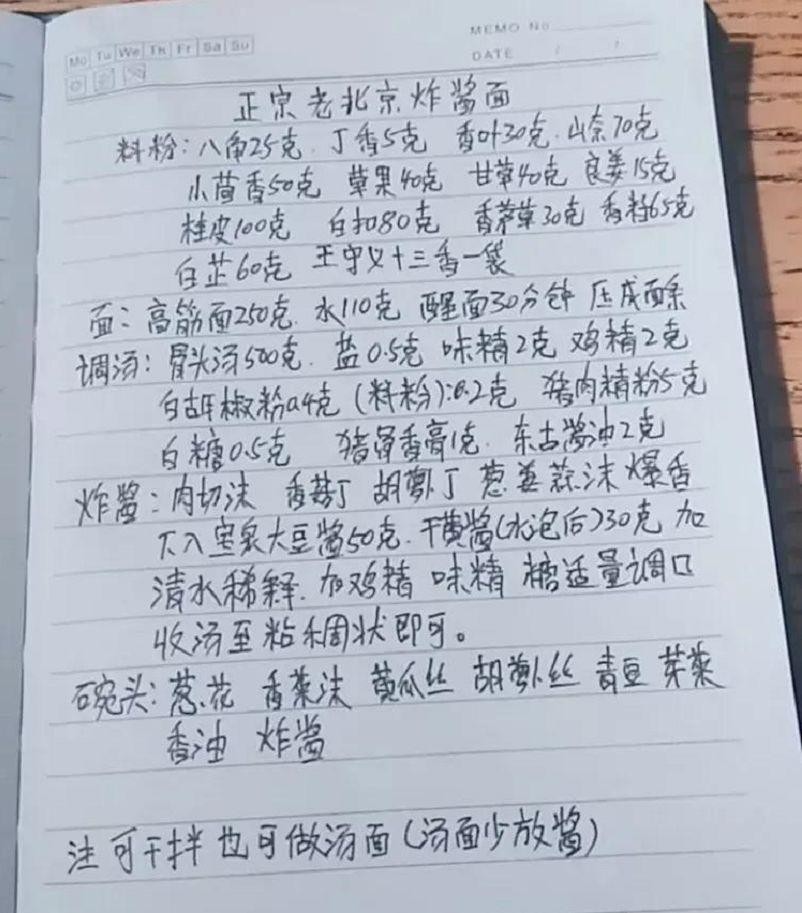 MEMO No
Mo Tu We Th Fr Sa Su
DATE / /
正宗老北京炸酱面
料粉:八角25克 丁香5克 香叶30克 山奈70克
小茴香50克 草果40克 甘草40克 良姜15克
桂皮100克 白扣80克 香茅草30克 香籽65克
白芷60克 王守义十三香一袋
面:高筋面250克 水110克 醒面30分钟 压成面条
调汤:骨头汤500克 盐0.5克 味精2克 鸡精2克
白胡椒粉0.4克(料粉):0.2克 猪肉精粉5克
白糖0.5克 猪骨香膏1克 东古酱油2克
炸酱:肉切沫 香菇丁 胡萝卜丁 葱姜蒜沫爆香
下入宝泉大豆酱50克.干黄酱(水泡后)30克 加
清水稀释.加鸡精 味精 糖适量调口
收汤至粘稠状即可。
碗头:葱花 香菜沫 黄瓜丝 胡萝卜丝 青豆 芽菜
香油 炸酱
注 可干拌也可做汤面(汤面少放酱)